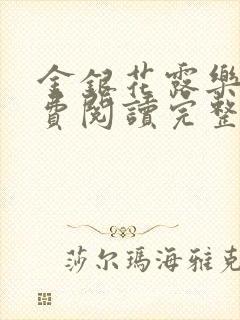 金銀花露樂
費閱讀完整
莎尔瑪海雅克